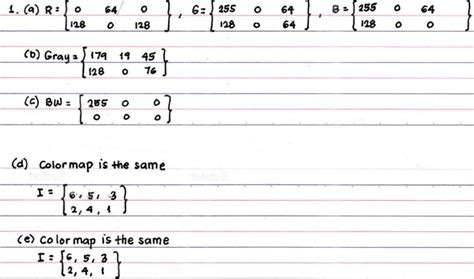 1. (a) R = { 0 64 0 } , G = { 255 0 64 } , B = { 255 0 64 }
128 0 128 128 0 64 128 0 0
(b) Gray = { 179 19 45 }
128 0 76
(c) BW = { 255 0 0 }
0 0 0
(d) Color map is the same
I = { 6, 5, 3 }
2, 4, 1
(e) Color map is the same
I = { 6, 5, 3 }
2, 4, 1